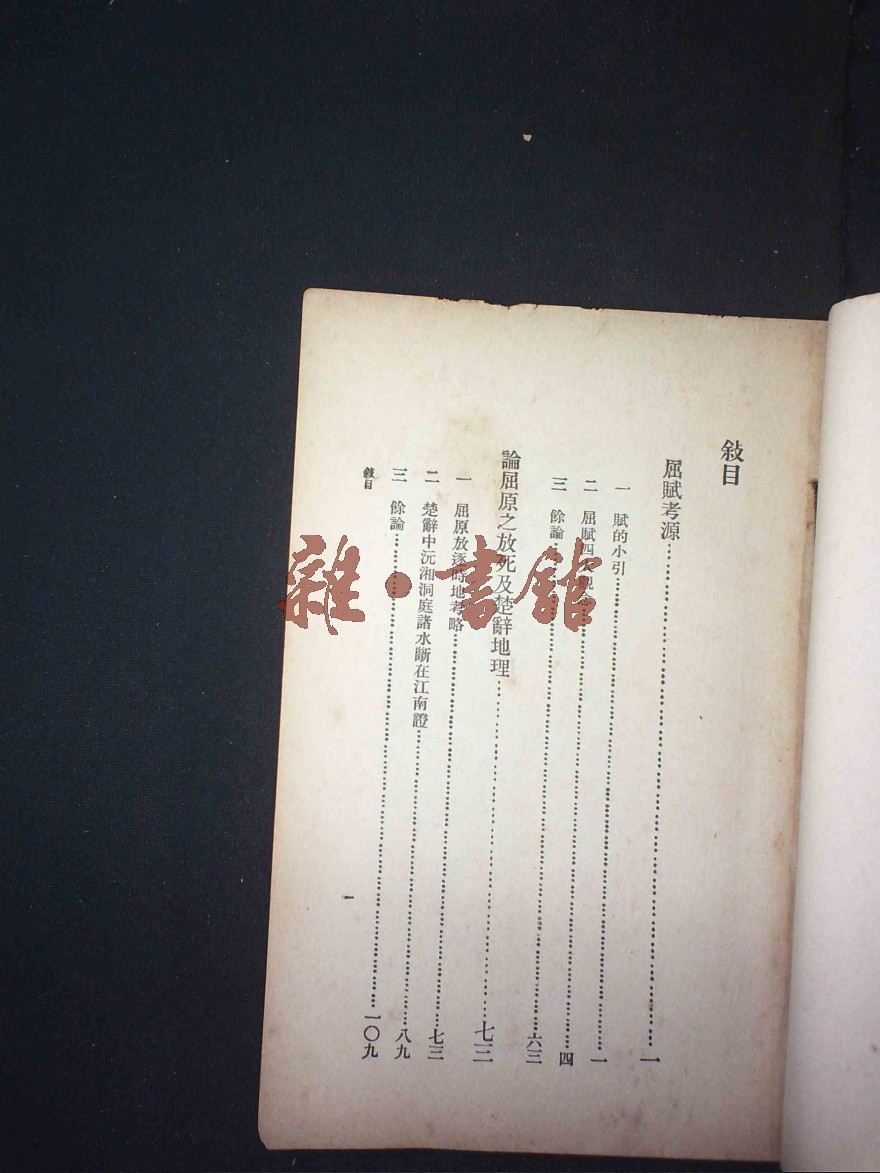 敍目
屈賦考源……一
一 賦的小引……一
二 屈賦四大觀念……四
三 餘論……六三
論屈原之放死及楚辭地理……七三
一 屈原放逐時地考略……七三
二 楚辭中沅湘洞庭諸水斷在江南證……八九
三 餘論……一〇九
敍目
一
雜·書館